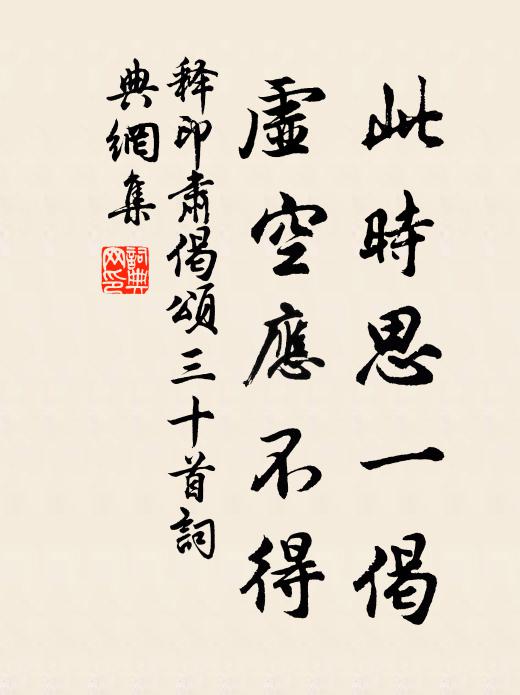 此時思一偈
虛空應不得
釋印肅偈頌三十首詞
典網集
詞典
网印